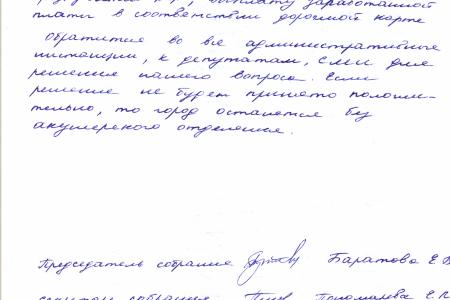 выплату заработанной
платы в соответствии дорожной карте
обратится во все административные
инстанции, к депутатам, СМИ для
решения нашего вопроса. Если
решение не будет принято положи-
тельно, то город останется без
акушерского отделения.
Председатель собрания Баратова Е.В
секретарь собрания Пономарева Е.